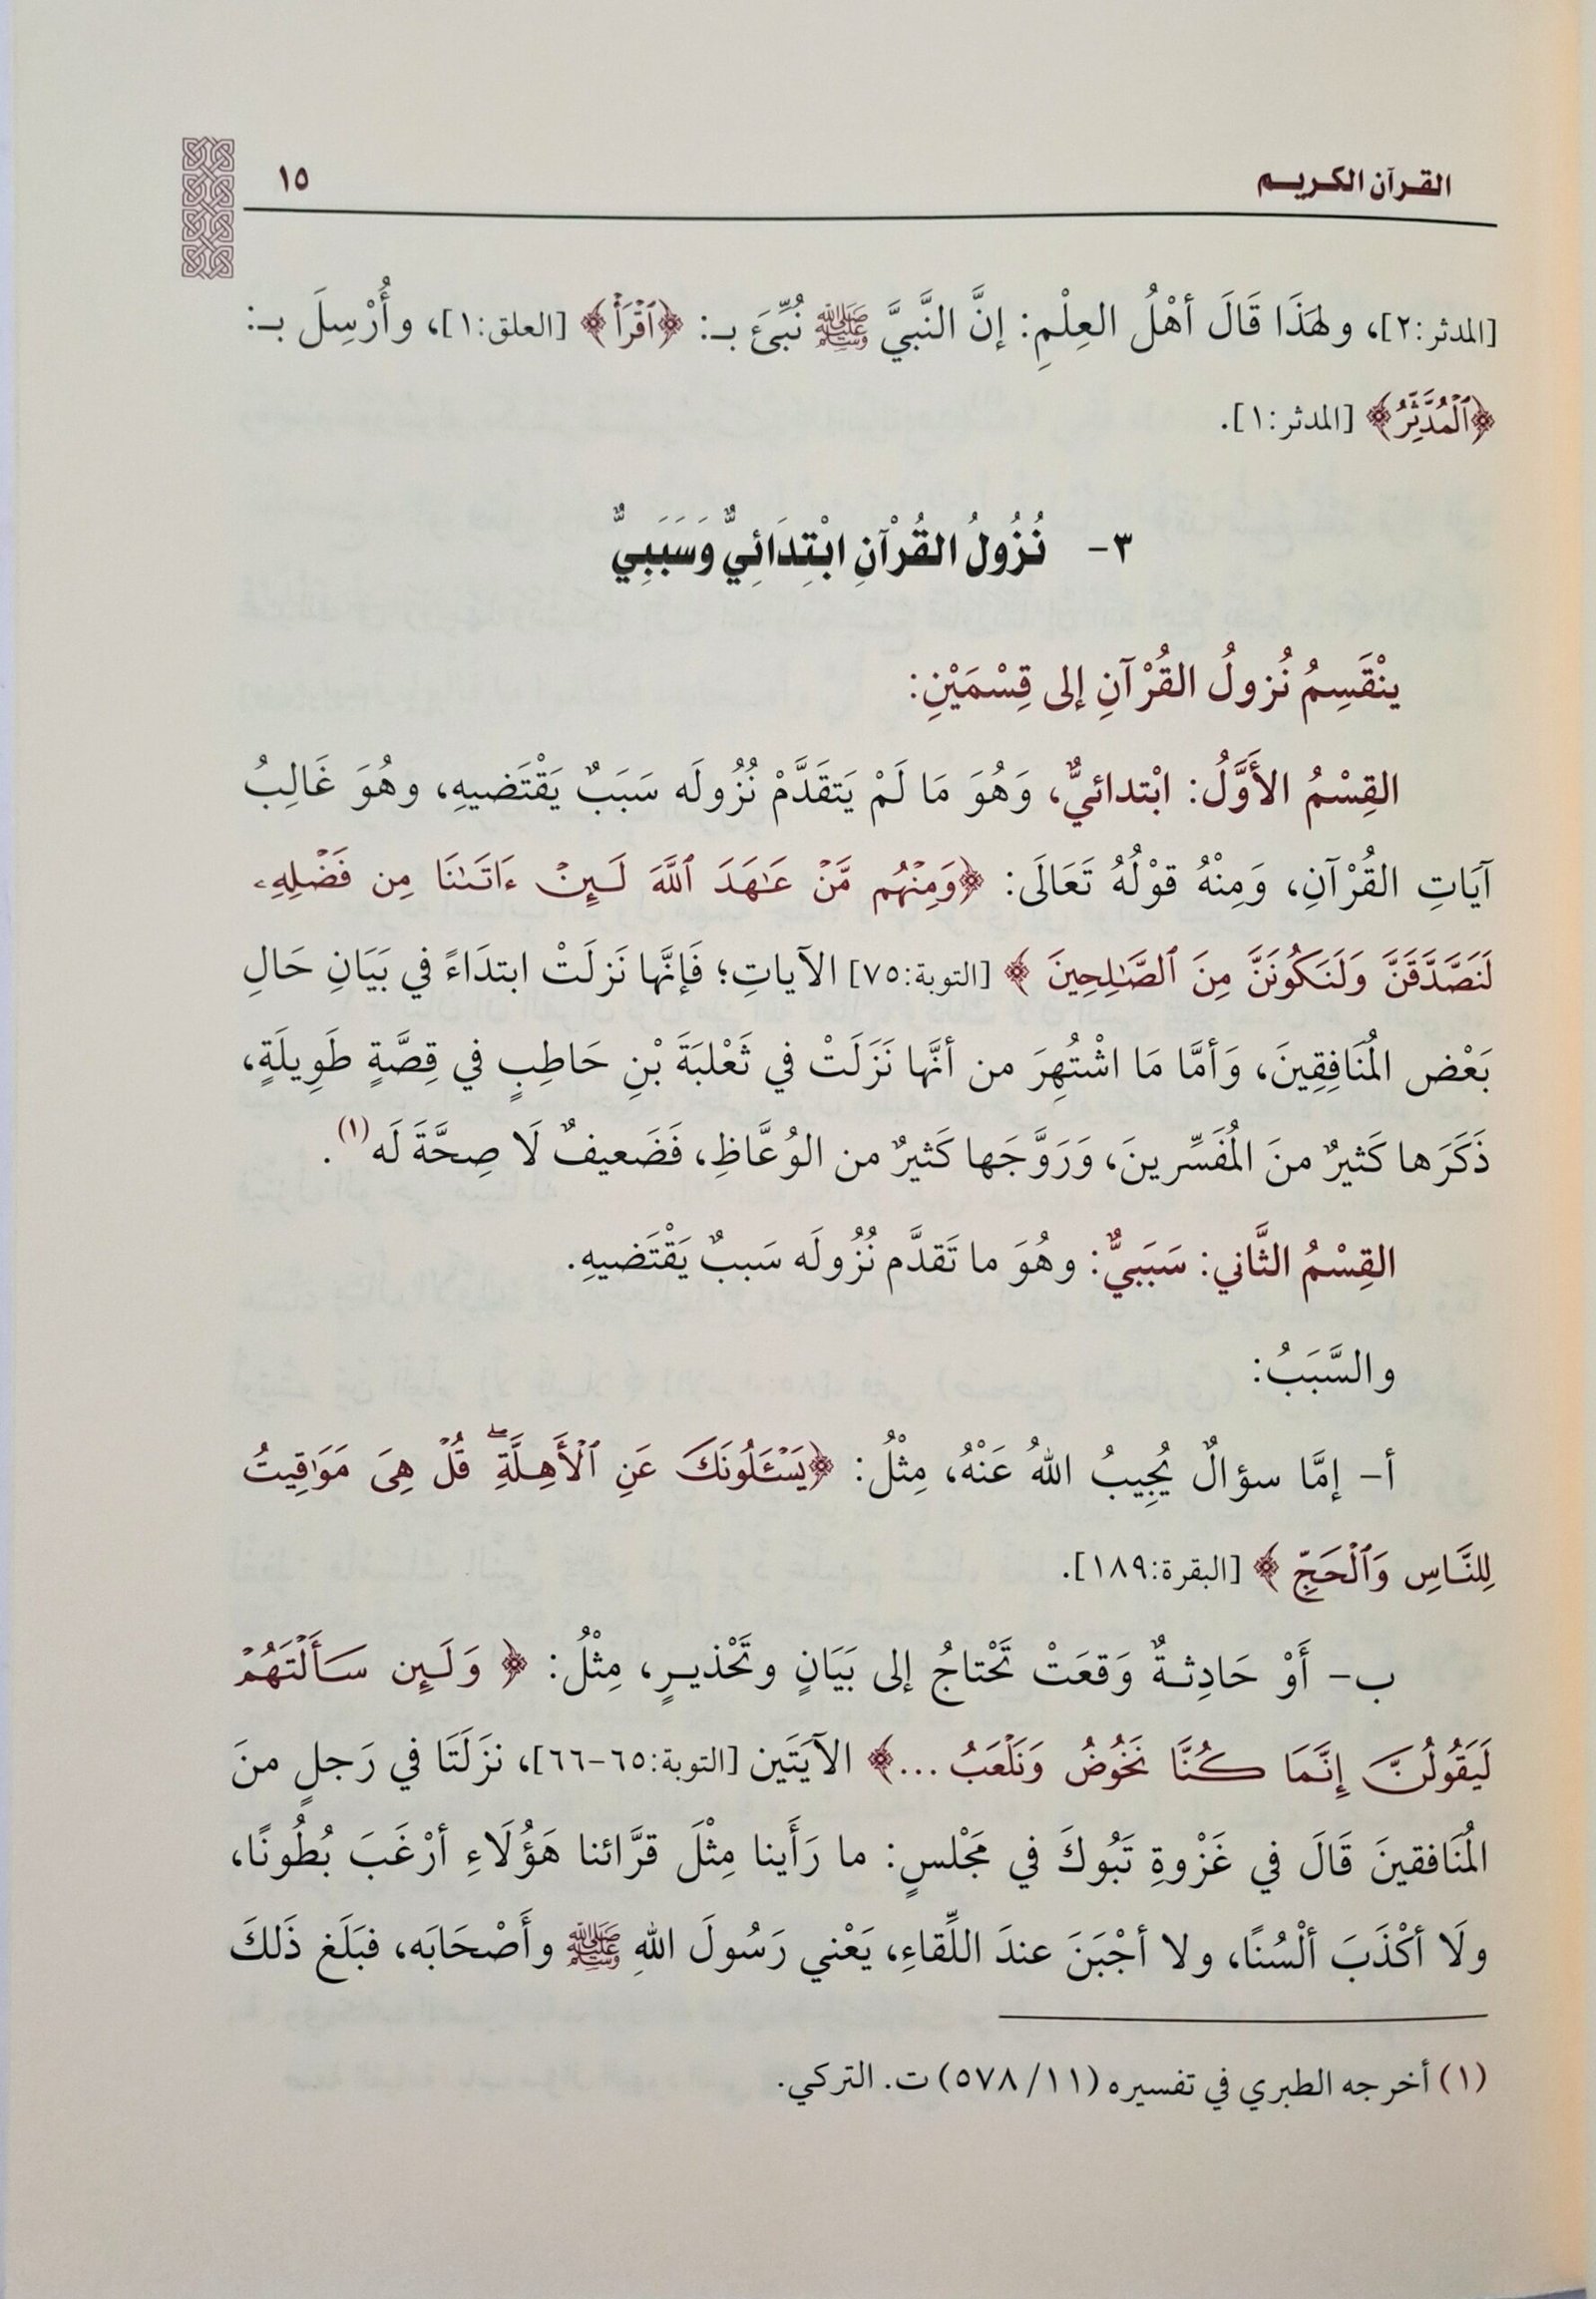 القرآن الكريم ١٥
[المدثر:٢]، ولهَذَا قَالَ أهْلُ العِلْمِ: إنَّ النَّبيَّ ﷺ نُبِّئَ بـ: ﴿ٱقْرَأْ﴾ [العلق:١]، وأُرْسِلَ بـ:
﴿ٱلْمُدَّثِّرُ﴾ [المدثر:١].
٣- نُزُولُ القُرْآنِ ابْتِدَائِيٌّ وَسَبَبِيٌّ
ينْقَسِمُ نُزولُ القُرْآنِ إلى قِسْمَيْنِ:
القِسْمُ الأَوَّلُ: ابْتدائيٌّ، وَهُوَ مَا لَمْ يَتقَدَّمْ نُزُولَه سَبَبٌ يَقْتَضيهِ، وهُوَ غَالِبُ
آيَاتِ القُرْآنِ، وَمِنْهُ قوْلُهُ تَعَالَى: ﴿وَمِنْهُم مَّنْ عَـٰهَدَ ٱللَّهَ لَـئِنْ ءَاتَىٰنَا مِن فَضْلِهِۦ
لَنَصَّدَّقَنَّ وَلَنَكُونَنَّ مِنَ ٱلصَّـٰلِحِينَ ﴾ [التوبة:٧٥] الآياتِ؛ فَإنَّها نَزلَتْ ابتدَاءً في بَيَانِ حَالِ
بَعْض المُنَافِقِينَ، وَأمَّا مَا اشْتُهِرَ من أنَّها نَزَلَتْ في ثَعْلبَةَ بْنِ حَاطِبٍ في قِصَّةٍ طَوِيلَةٍ،
ذَكَرَها كَثيرٌ منَ المُفَسِّرينَ، وَرَوَّجَها كَثيرٌ من الوُعَّاظِ، فَضَعيفٌ لَا صِحَّةَ لَه(١).
القِسْمُ الثَّاني: سَبَبيٌّ: وهُوَ ما تَقدَّم نُزُولَه سَببٌ يَقْتَضيهِ.
والسَّبَبُ:
أ- إمَّا سؤالٌ يُجِيبُ اللهُ عَنْهُ، مِثْلُ: ﴿يَسْـَٔلُونَكَ عَنِ ٱلْأَهِـلَّةِ ۖ قُلْ هِىَ مَوَٰقِيتُ
لِلنَّـاسِ وَٱلْحَجِّ ﴾ [البقرة:١٨٩].
ب- أَوْ حَادِثـةٌ وَقعَتْ تَحْتاجُ إلى بَيَانٍ وتَحْذيـرٍ، مِثْلُ: ﴿ وَلَـئِن سَـأَلْتَهُمْ
لَيَقُولُنَّ إِنَّمَا كُنَّا نَخُوضُ وَنَلْعَبُ ...﴾ الآيَتَين [التوبة:٦٥-٦٦]، نزَلَتَا في رَجلٍ منَ
المُنَافقينَ قَالَ في غَزْوةِ تَبُوكَ في مَجْلسٍ: ما رَأَينا مِثْلَ قرَّائنا هَؤُلَاءِ أرْغَبَ بُطُونًا،
ولَا أكْذَبَ ألْسُنًا، ولا أجْبَنَ عندَ اللِّقاءِ، يَعْني رَسُولَ اللهِ ﷺ وأَصْحَابَه، فبَلَغ ذَلكَ
(١) أخرجه الطبري في تفسيره (١١/ ٥٧٨) ت. التركي.